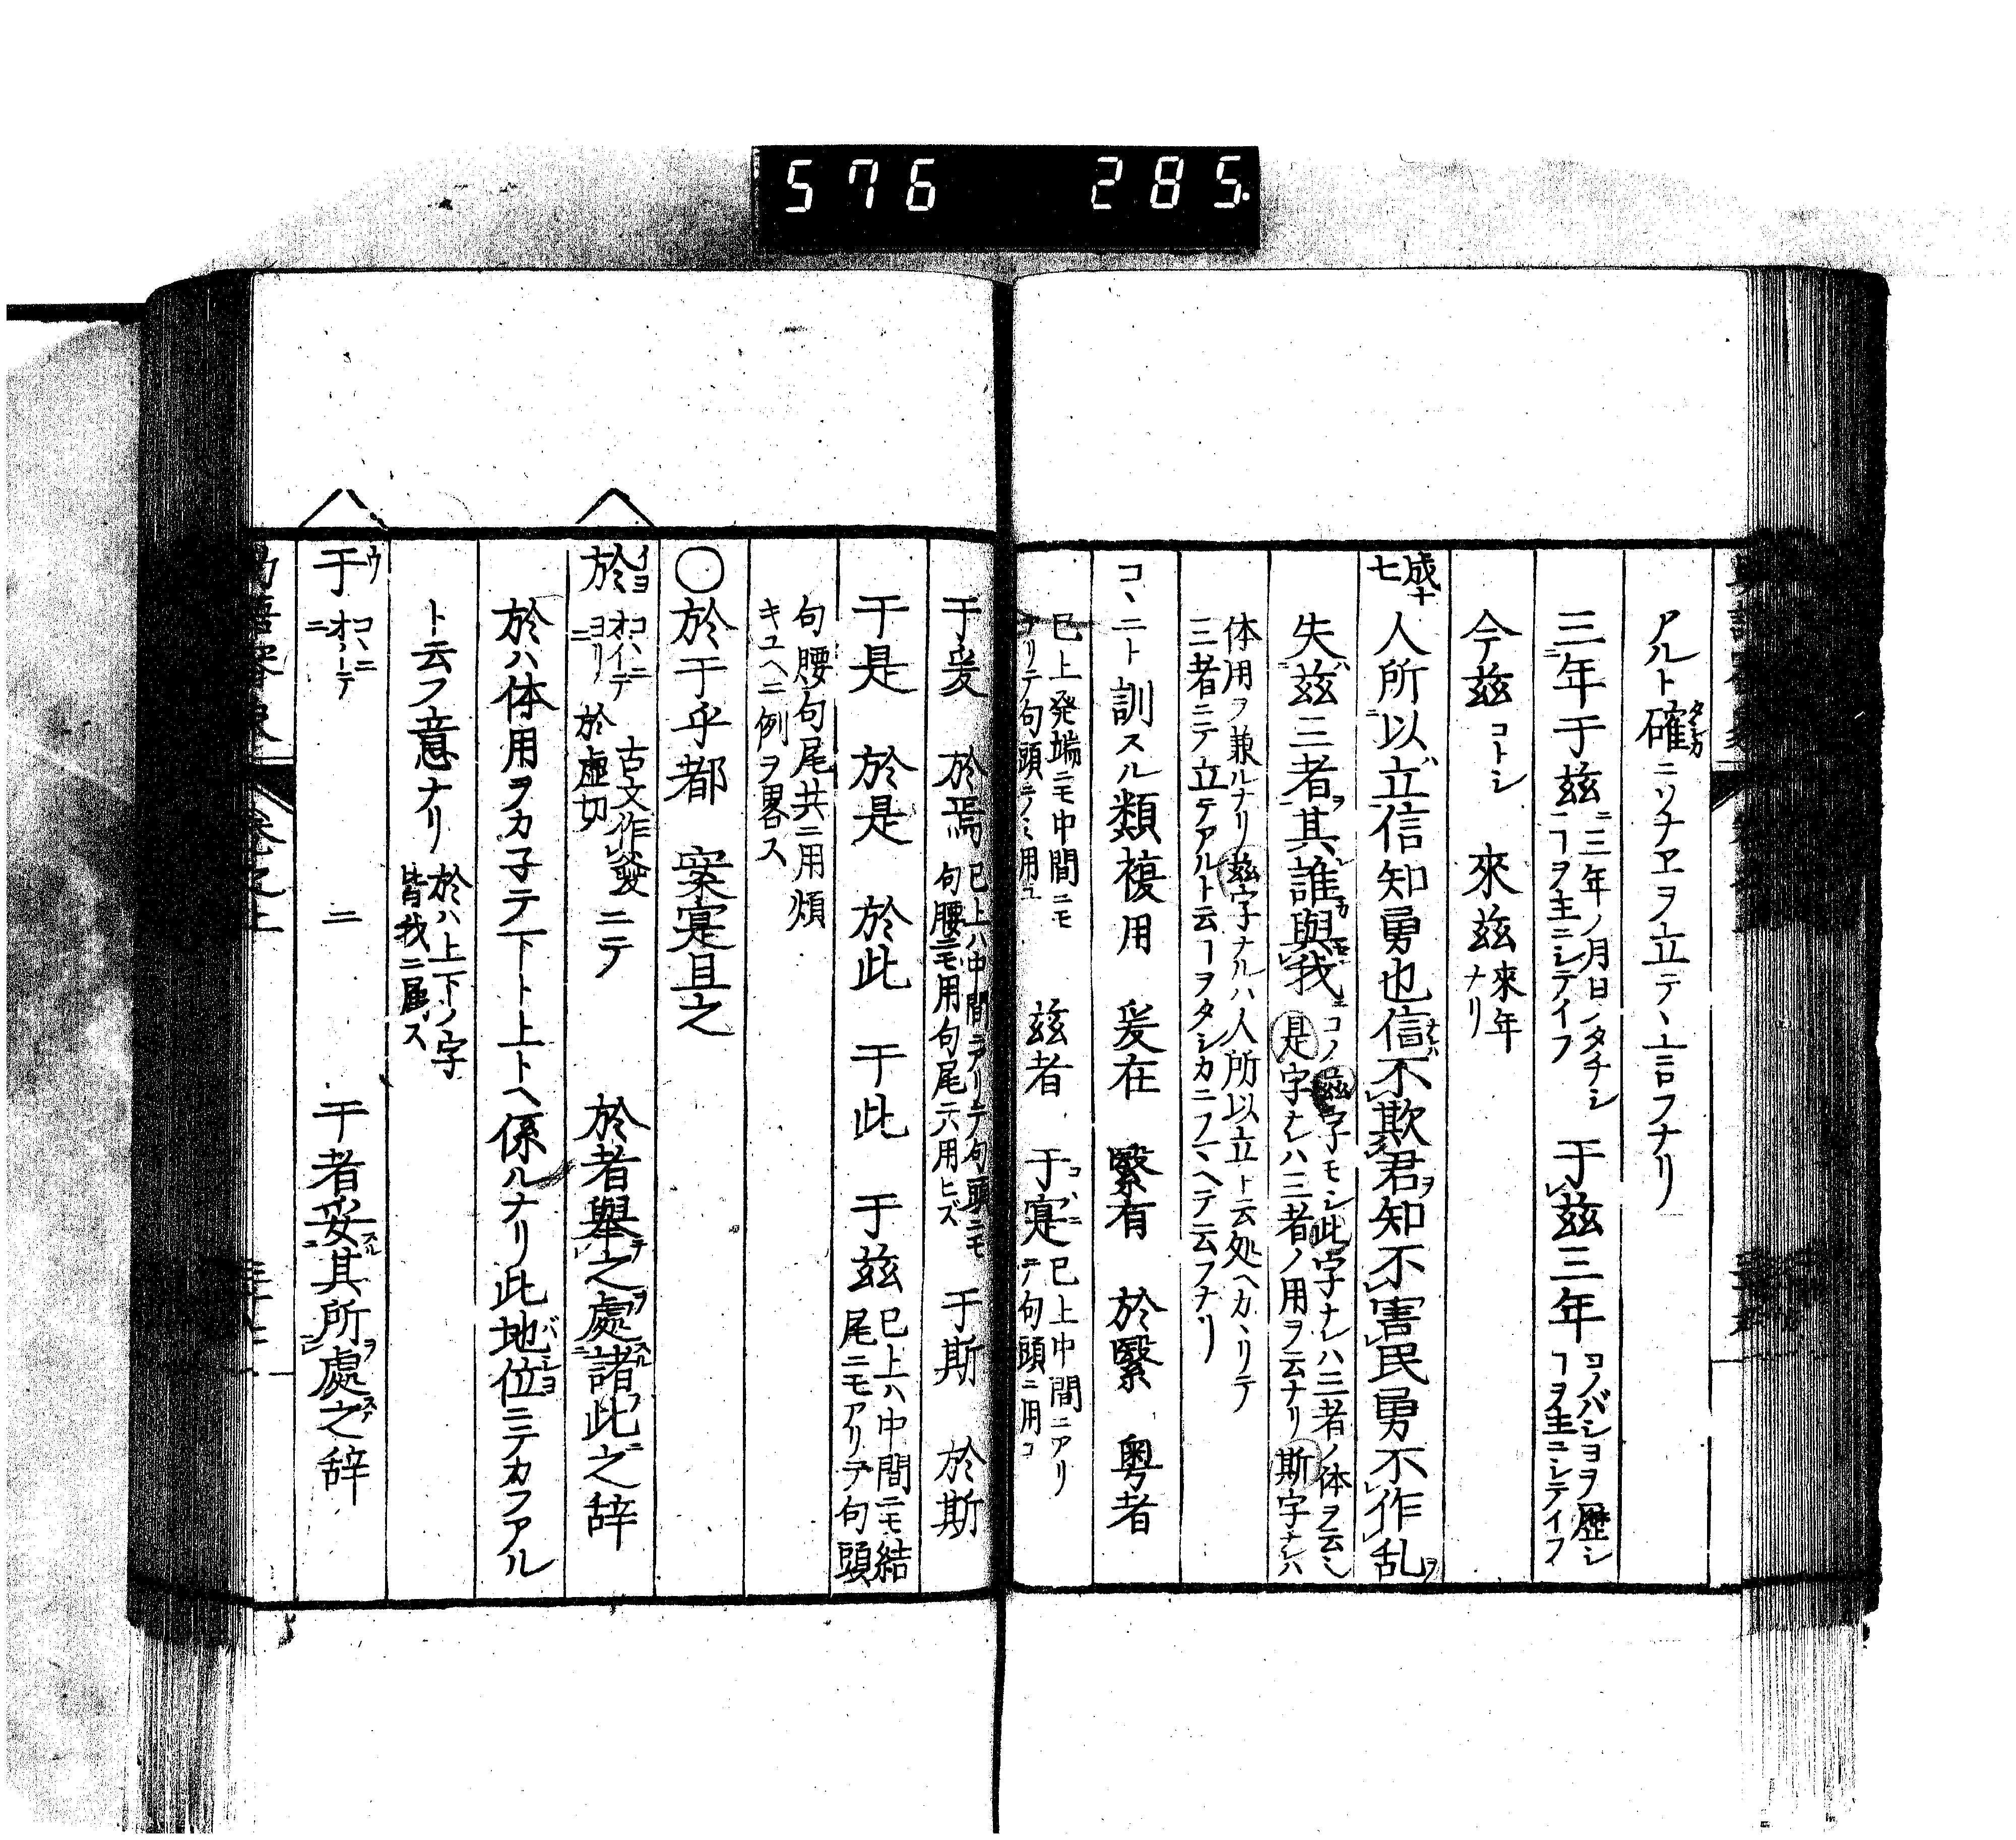 576 285
アルト確ニソナヱヲ立テヽ言フナリ
三年于玆 二三年ノ月日ノタチシヿヲ主ニシテイフ 于玆三年 コノバシヨヲ歴シヿヲ主ニシテイフ
今玆 コトシ 來玆 來年ナリ
成十七 人所以立信知勇也信不欺君知不害民勇不作乱
失玆三者其誰與我 コノ玆字モシ此字ナレハ三者ノ体ヲ云シ是字ナレハ三者ノ用ヲ云ナリ斯字ナレハ
体用ヲ兼ルナリ玆字ナルハ人所以立ト云処ヘカヽリテ三者ニテ立テアルト云ヿヲタシカニフマヘテ云フナリ
コヽニト訓スル類複用 爰在 繄有 於繄 粤者
已上発端ニモ中間ニモアリテ句頭ニノミ用ユ 玆者 于寔 已上中間ニアリテ句頭ニ用コ
于爰 於焉 已上ハ中間ニアリテ句頭ニモ句腰ニモ用句尾ニハ用ヒズ 于斯 於斯
于是 於是 於此 于此 于玆 已上ハ中間ニモ結尾ニモアリテ句頭
句腰句尾共ニ用煩キユヘニ例ヲ畧ス
〇於于乎都 案寔且之
於 コヽニ オイテ ヨリ ニ 於虚切 古文作 ニテ 於者舉之處諸此之辞
於ハ体用ヲカ子テ下ト上トヘ係ルナリ此地位ニテカフアル
ト云フ意ナリ 於ハ上下ノ字皆我ニ属ス
于 ウ コヽニ オイテ ニ 二 于者妥其所處之辞